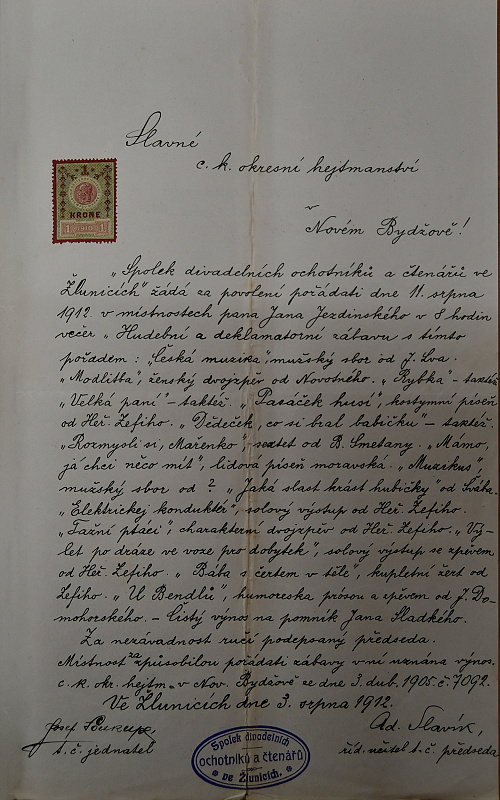 Slavné
c. k. okresní hejtmanství
v
Novém Bydžově!
1
KRONE
1 1910 1
„Spolek divadelních ochotníků a čtenářů ve
Žlunicích" žádá za povolení pořádati dne 11. srpna
1912 v místnostech pana Jana Jezdinského v 8 hodin
večer „Hudební a deklamatorní zábavu s tímto
pořadem: „Česká muzika", mužský sbor od J. Lva.
„Modlitba", ženský dvojzpěv od Novotného. „Rybka" - taktéž
„Velká paní" - taktéž. „Pasáček husí", kostymní píseň
od Heř. Zefiho. „Dědeček, co si bral babičku" - taktéž.
„Rozmysli si, Mařenko", sextet od B. Smetany. „Mámo,
já chci něco mít", lidová píseň moravská. „Muzikus",
mužský sbor od ? „Jaká slast krást hubičky" od Švába.
„Elektrickej konduktér", solový výstup od Heř. Zefiho.
„Tažní ptáci", charakterní dvojzpěv od Heř. Zefiho. „Vý-
let po dráze ve voze pro dobytek", solový výstup se zpěvem
od Heř. Zefiho. „Bába s čertem v těle", kupletní žert od
Zefiho. „U Bendlů", humoreska prósou a zpěvem od J. Do-
mohorského. - Čistý výnos na pomník Jana Sladkého.
Za nezávadnost ručí podepsaný předseda.
Místnost za způsobilou pořádati zábavy v ní uznána výnos.
c. k. okr. hejtm. v Nov. Bydžově ze dne 3. dub. 1905 č. 7092.
Ve Žlunicích dne 3. srpna 1912.
Josef Soukup, Ad. Slavík,
t. č. jednatel říd. učitel t. č. předseda
Spolek divadelních
ochotníků a čtenářů
ve Žlunicích.